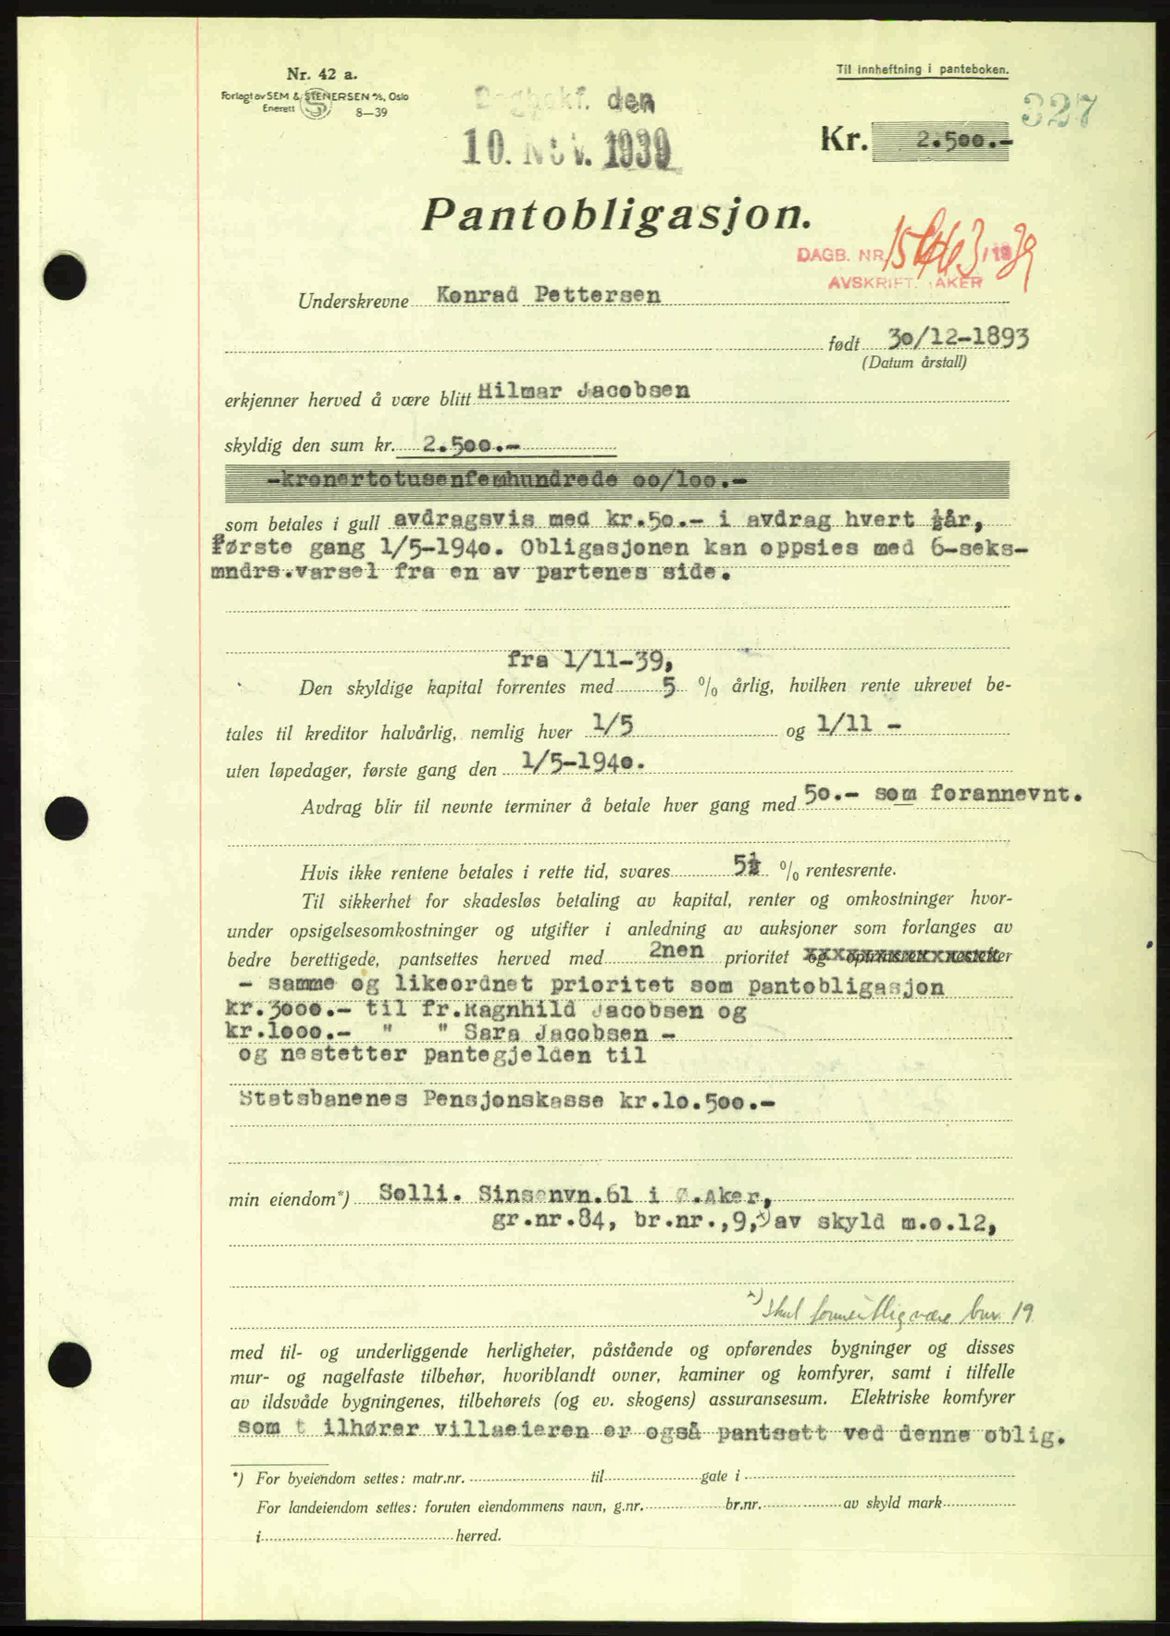 Nr. 42 a.
Forlagt av SEM & STENERSEN A/S, Oslo
Enerett 8—39
Til innheftning i panteboken.
327
Dagbokf. den
10. Nov. 1939
Kr. 2.500.-
Pantobligasjon.
DAGB. NR. 15463/1939
AVSKRIFT. AKER
Underskrevne Konrad Pettersen
født 30/12-1893
(Datum årstall)
erkjenner herved å være blitt Hilmar Jacobsen
skyldig den sum kr. 2.500.-
-kronertotusenfemhundrede 00/100.-
som betales i gull avdragsvis med kr.50.- i avdrag hvert ½år,
første gang 1/5-1940. Obligasjonen kan oppsies med 6-seks-
mndrs.varsel fra en av partenes side.
fra 1/11-39,
Den skyldige kapital forrentes med 5 % årlig, hvilken rente ukrevet be-
tales til kreditor halvårlig, nemlig hver 1/5 og 1/11 -
uten løpedager, første gang den 1/5-1940.
Avdrag blir til nevnte terminer å betale hver gang med 50.- som forannevnt.
Hvis ikke rentene betales i rette tid, svares 5½ % rentesrente.
Til sikkerhet for skadesløs betaling av kapital, renter og omkostninger hvor-
under opsigelsesomkostninger og utgifter i anledning av auksjoner som forlanges av
bedre berettigede, pantsettes herved med 2nen prioritet
- samme og likeordnet prioritet som pantobligasjon
kr.3000.- til fr.Ragnhild Jacobsen og
kr.1000.- " " Sara Jacobsen -
og nestetter pantegjelden til
Statsbanenes Pensjonskasse kr.10.500.-
min eiendom*) Solli. Sinsenvn.61 i Ø.Aker,
gr.nr.84, br.nr.,9,x) av skyld m.o.12,
x) skal formentlig være bnr. 19
med til- og underliggende herligheter, påstående og opførendes bygninger og disses
mur- og nagelfaste tilbehør, hvoriblandt ovner, kaminer og komfyrer, samt i tilfelle
av ildsvåde bygningenes, tilbehørets (og ev. skogens) assuransesum. Elektriske komfyrer
som t ilhører villaeieren er også pantsatt ved denne oblig.
*) For byeiendom settes: matr.nr. til gate i
For landeiendom settes: foruten eiendommens navn, g.nr. br.nr. av skyld mark
i herred.